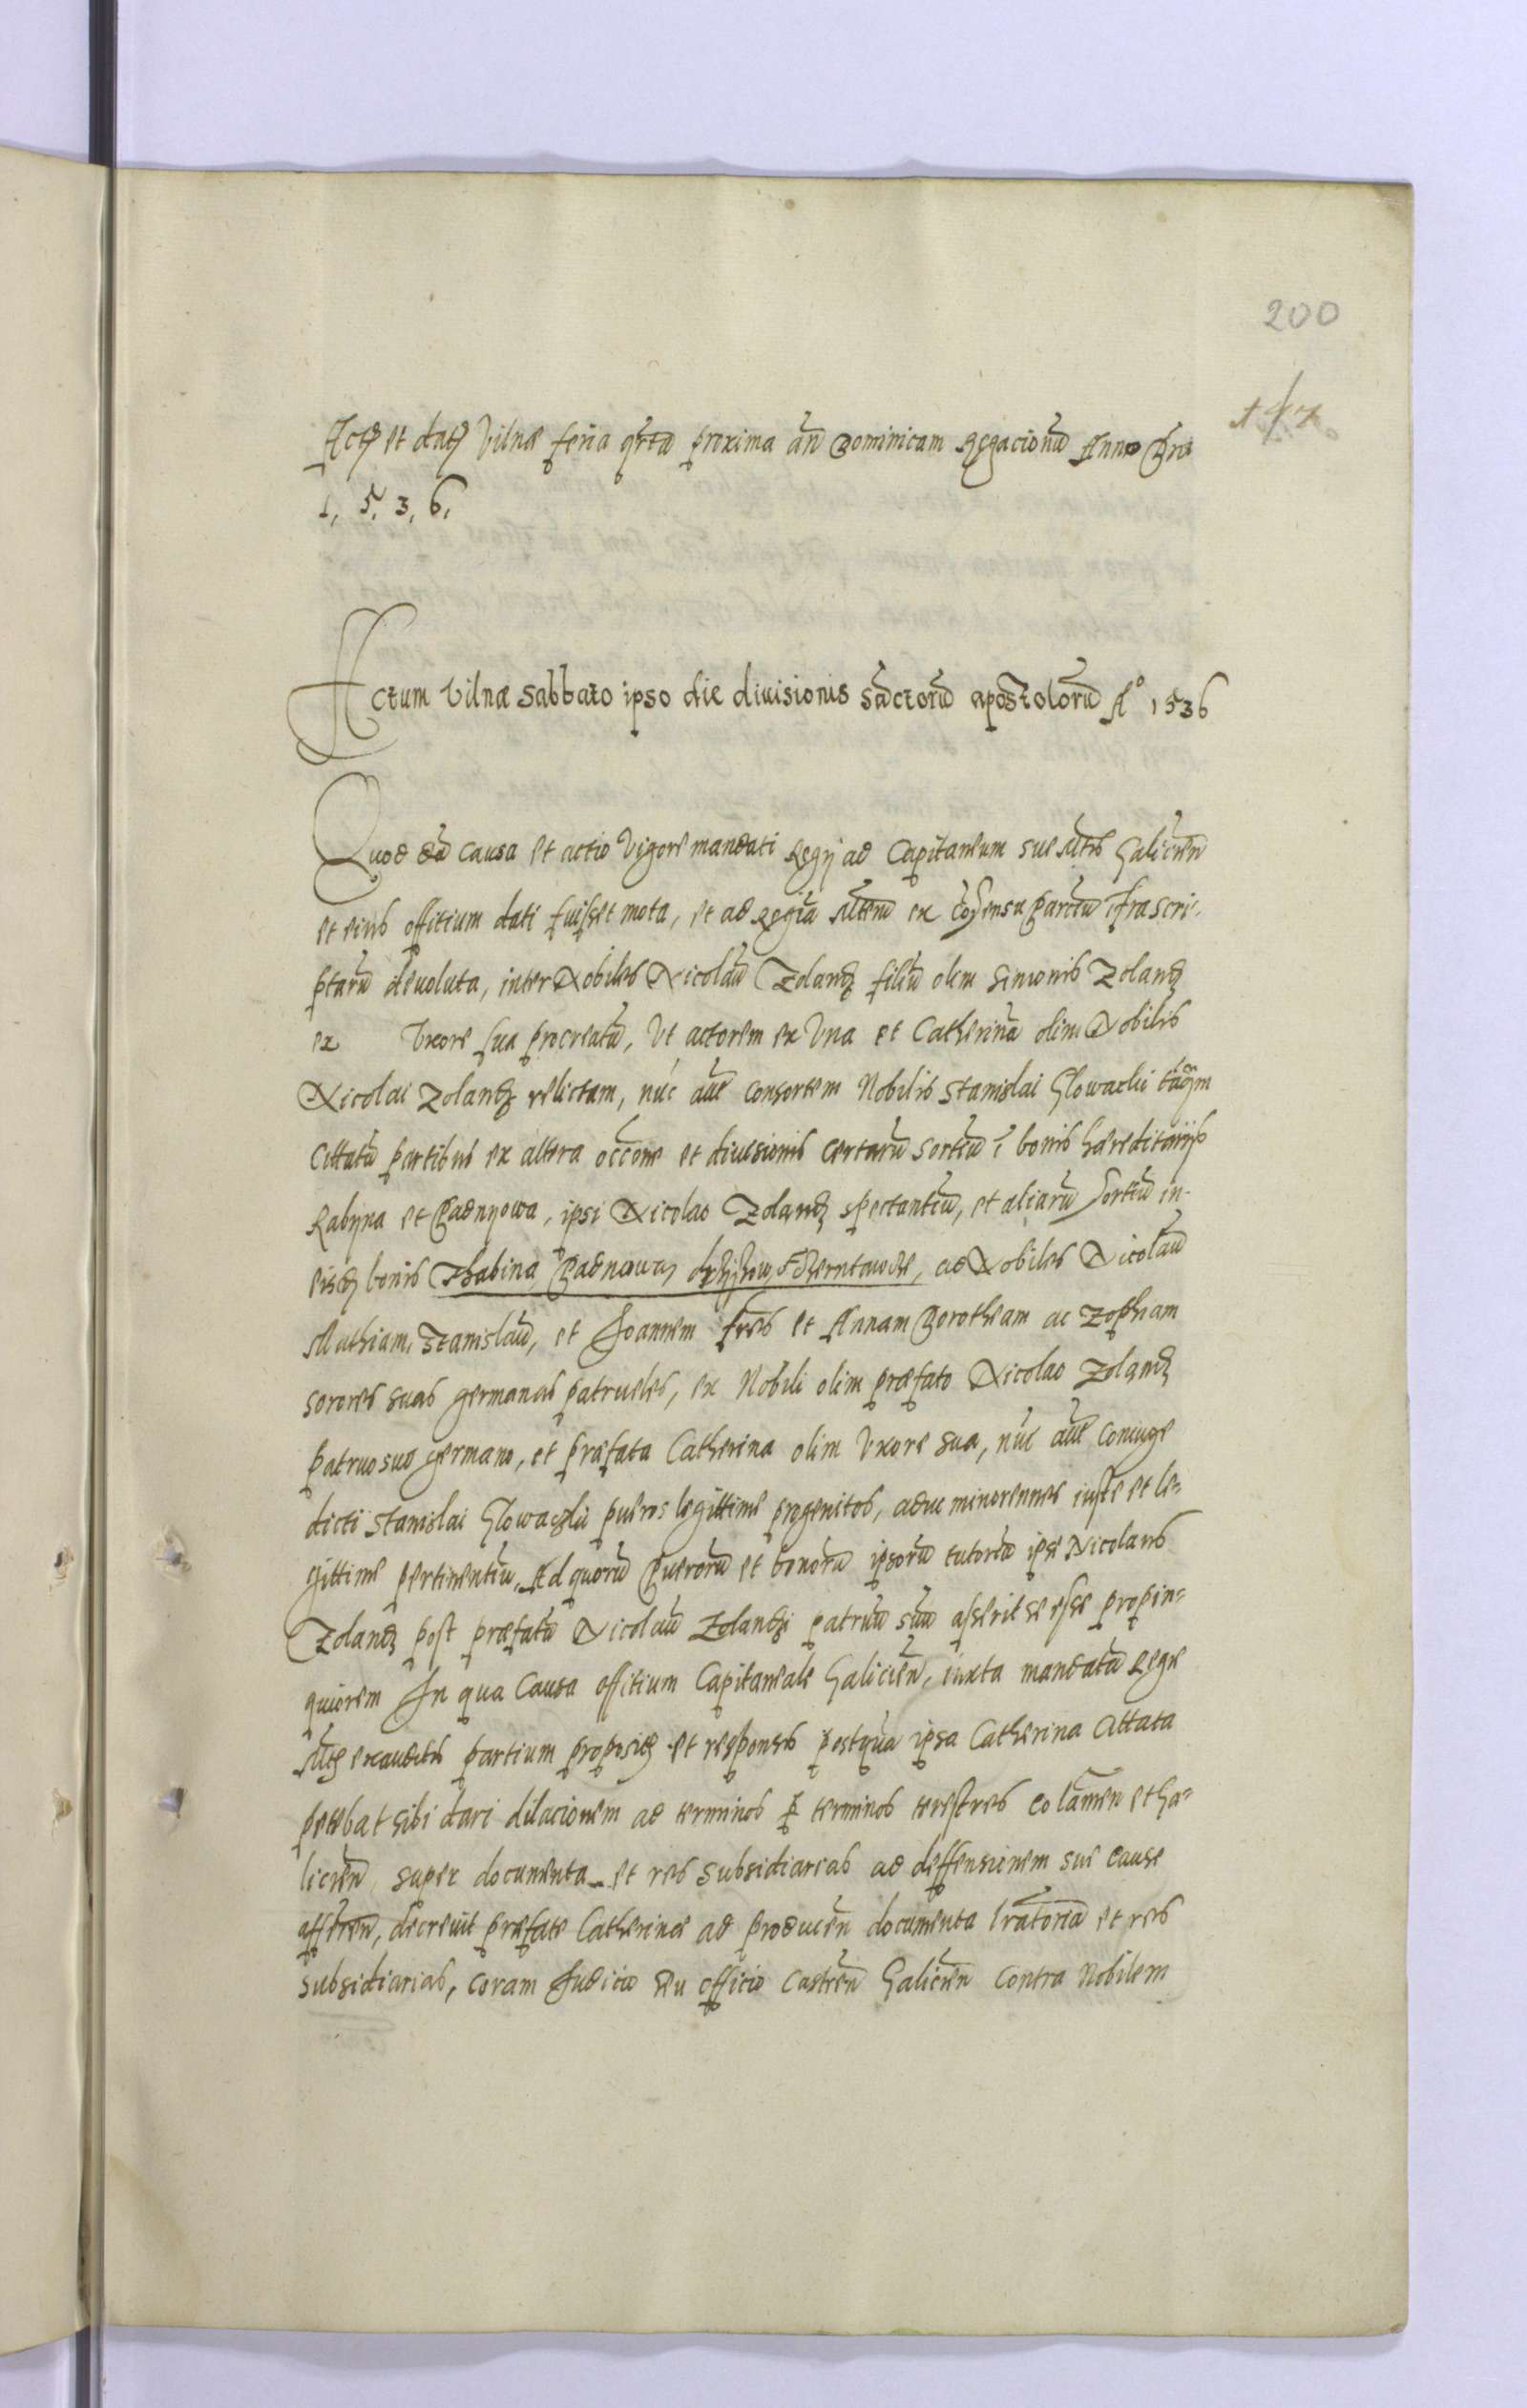 200
Actꝫ et datꝫ Vilnæ feria qrta proxima an̄ Dominicam Rogacionū Anno Dni
1, 5, 3, 6,
Actum Vilnæ Sabbato ipso die diuisionis Sāctorū apostolorū Aº 1536
Quod dū causa et actio Vigore mandati Regij ad Capitaneum sue Mtis Halicien̄
et eius offitium dati fuisset mota, et ad Regiā Mtem̄ ex cōsensu partiū īfrascri-
ptarū deuoluta, inter Nobiles Nicolaū Zolandꝫ filiū olim Simonis Zolandꝫ
ex Vxore sua procreatū, Vt actorem ex Vna et Catherinā olim Nobilis
Nicolai Zolandꝫ relictam, nūc aūt consortem Nobilis Stanislai Glowaclii tāqm
Cittatā partibus ex altera occōne et diuisionis certarū sortiū ī bonis hæreditarijs
Rabyna et Padnyowa, ipsi Nicolao Zolandꝫ spectantiū, et aliarū sortiū in
eisdꝫ bonis Thabina Padnowa, ad Nobiles Nicolaū
Mathiam, Stanislaū, et Joannem frēs et Annam Dorotheam ac Zopham
sorores suas germanas patrueles, ex Nobili olim præfato Nicolao Zolandꝫ
patruo suo germano, et præfata Catherina olim Vxore sua, nūc aūt coniuge
dicti Stanislai Glowaclii pueros legittime progenitos, aduc minorennes iuste et le=
gittime pertinentiū, Ad quorū puerorū et bonorū ipsorū tutoriā ipse Nicolaus
Zolandꝫ post præfatū Nicolaū Zolandꝫi patruū suū asserit se esse propin=
quiorem In qua Causa offitium Capitaneale Halicien̄, iuxta mandatū Regie
Mtꝫ exauditis partium propositꝫ et responsis postquā ipsa Catherina Attata
petebat sibi dari dilacionem ad terminos ꝑ terminos terestres Colamen et ha=
licien̄ super documenta et res subsidiarias ad deffensionem sue cause
afferen̄, decreuit præfate Catherinæ ad producen̄ documenta lratoria et res
subsidiarias, coram Judicio seu officio Castren̄ Halicien̄ contra Nobilem